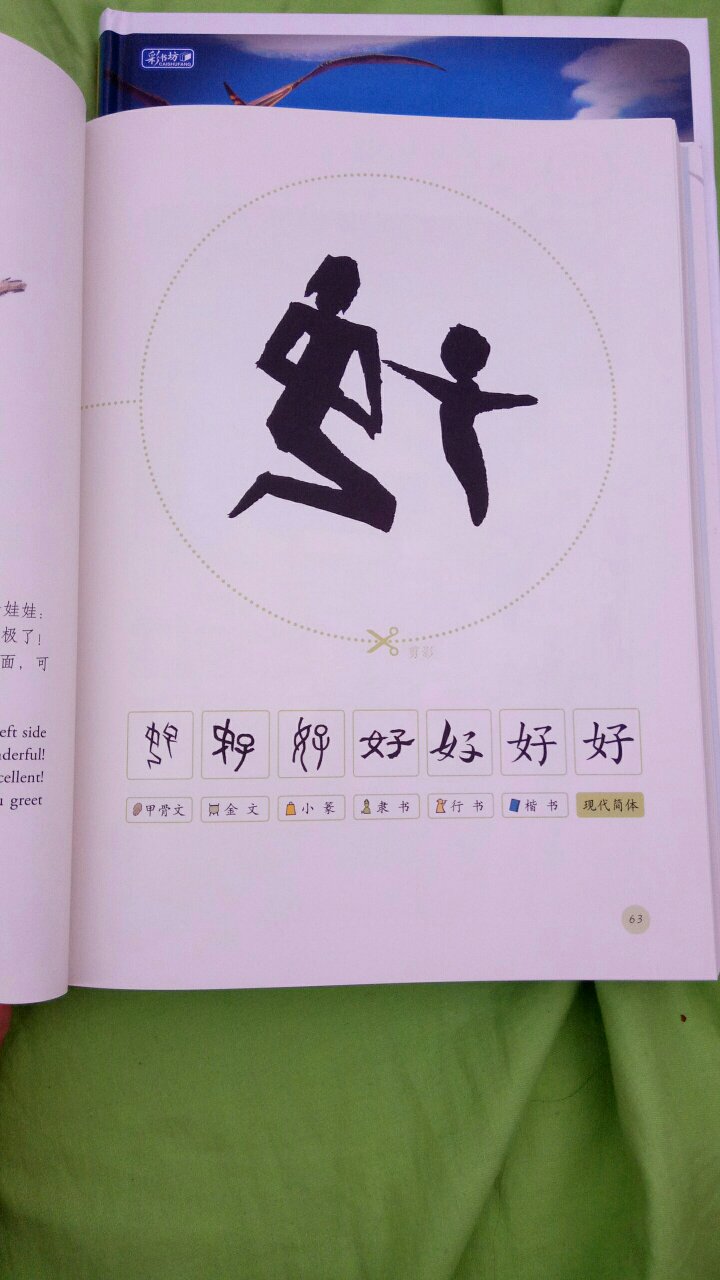 彩书坊
CAISHUFANG
娃娃:
极了!
面,可
eft side
derful!
cellent!
u greet
剪影
好 好 好 好 好 好 好
甲骨文 金文 小篆 隶书 行书 楷书 现代简体
63